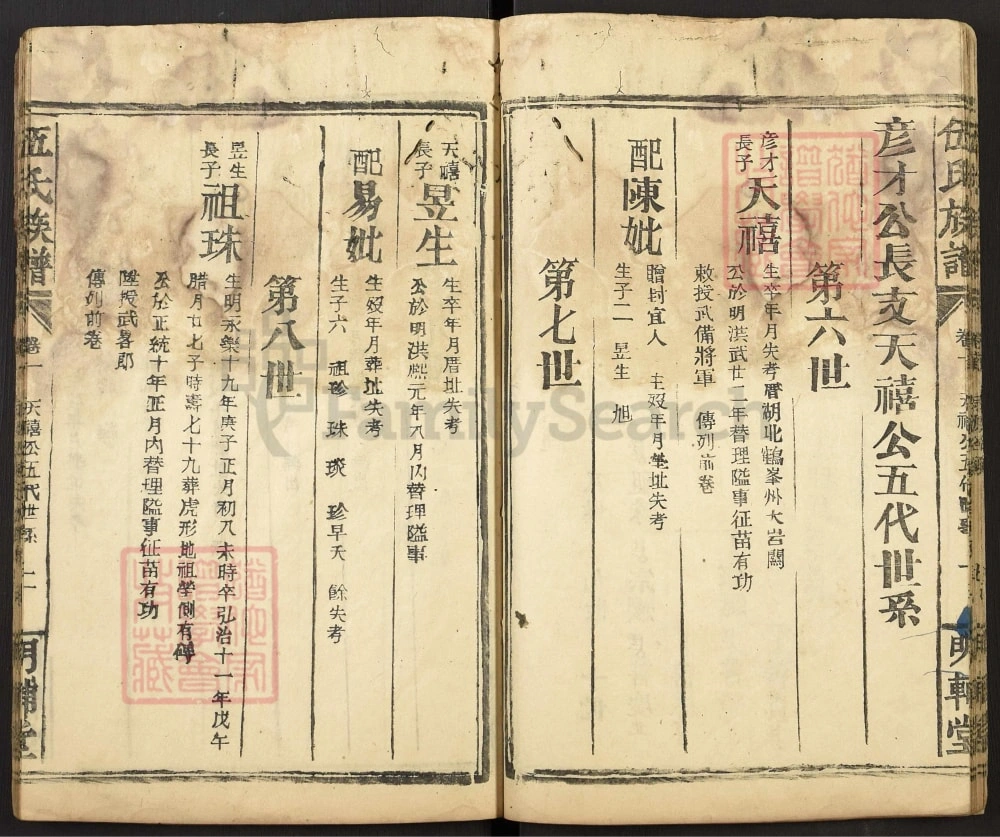 伍氏族譜
卷一
明輔堂
彦才公長支天禧公五代世系
第六世
彦才
長子
天禧
生卒年月失考厝湖北鶴峯州大岩關
公於明洪武廿二年替理隘事征苗有功
敕授武備將軍 傳列前卷
配陳妣
贈封宜人 生歿年月塟址失考
生子二 昱生 旭
第七世
天禧
長子
昱生
生卒年月厝址失考
公於明洪熙元年八月內替理隘事
配易妣
生歿年月葬址失考
生子六 祖珍 珠 琰 珍早夭 餘失考
第八世
昱生
長子
祖珠
生明永樂十九年庚子正月初八未時卒弘治十一年戊午
臘月廿七子時壽七十九葬虎形地祖塋側有碑
公於正統十年正月內替理隘事征苗有功
陞授武畧郎
傳列前卷
伍氏族譜
卷一
天禧公五代世系
二
明輔堂
FamilySearch